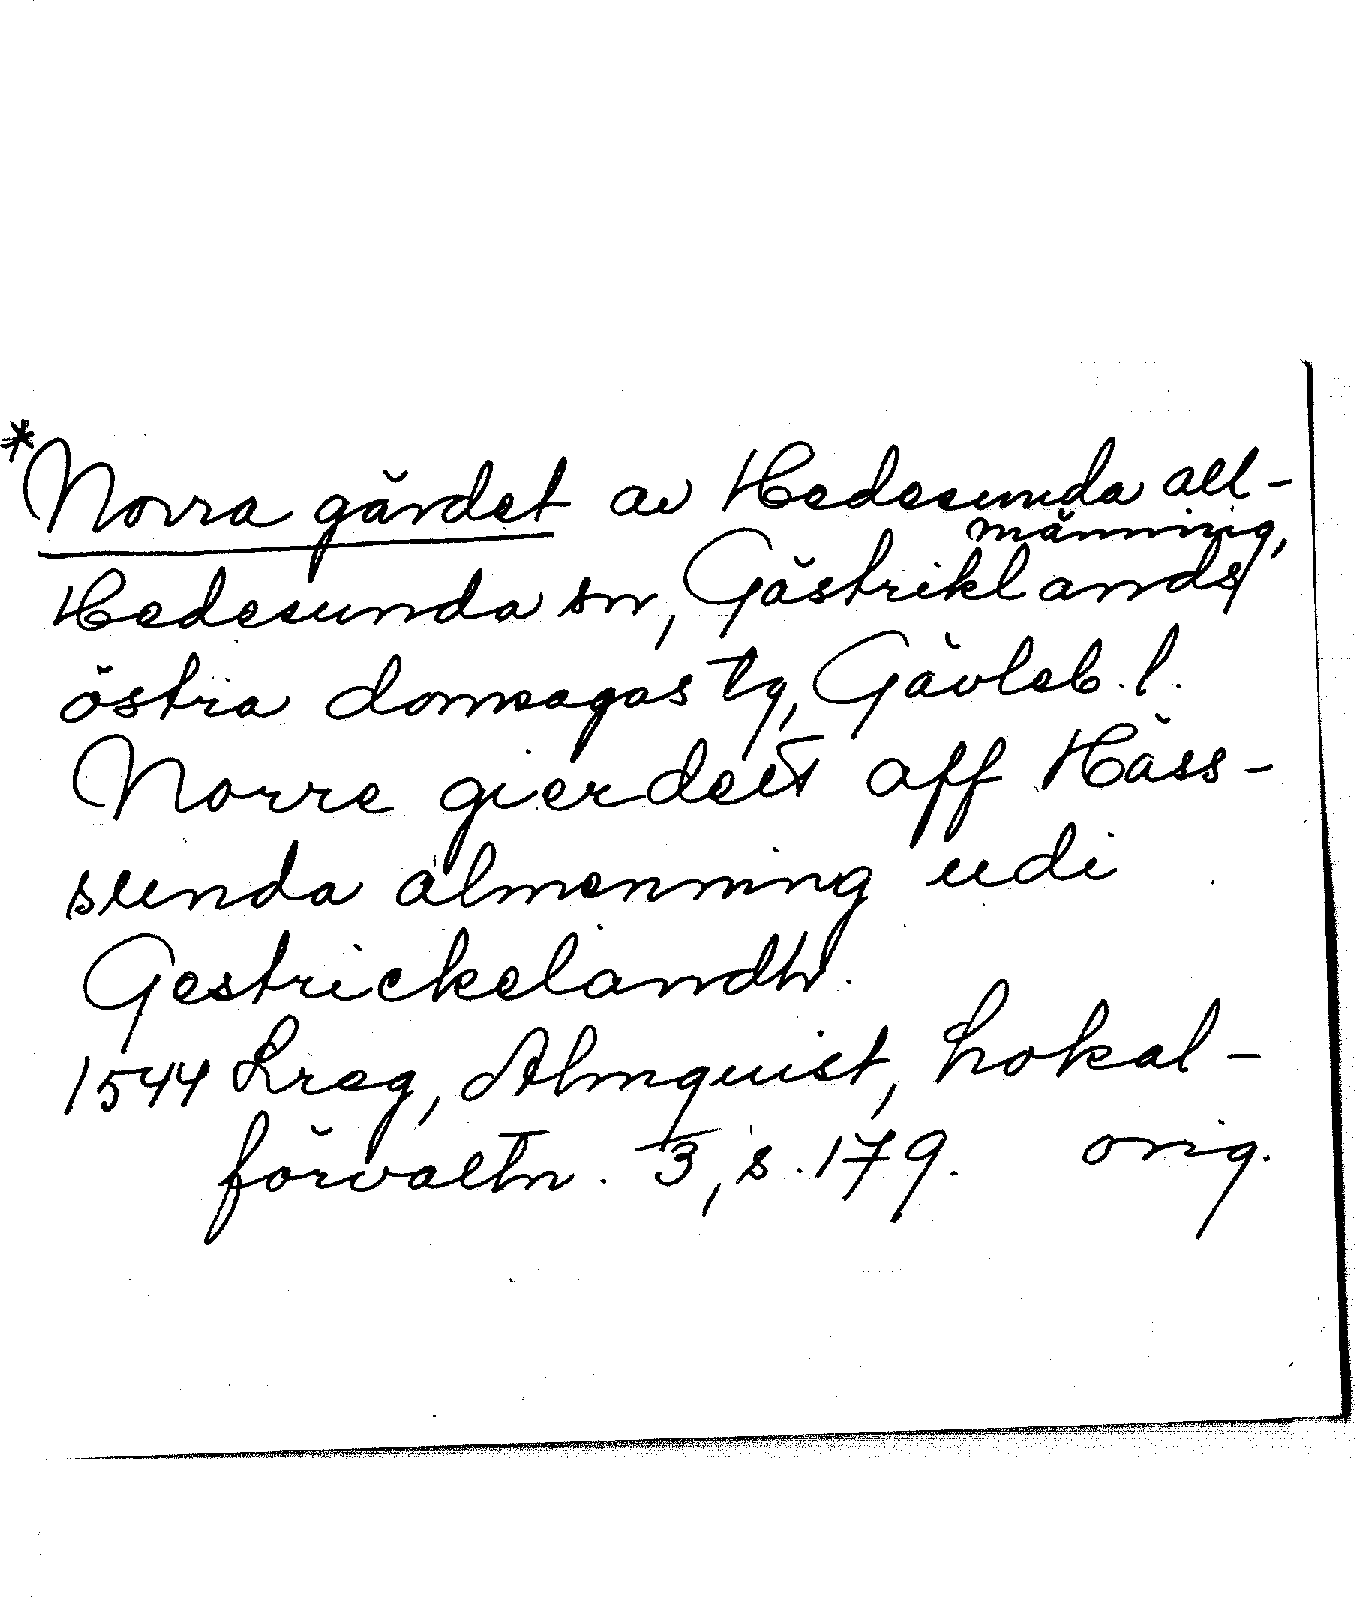 *Norra gärdet av Hedesunda all-
männing,
Hedesunda sn, Gästriklands
östra domsagas tg, Gävleb. l.
Norre gierdeet aff Häss-
sunda almenning udi
Gestrickelandh.
1544 Lreg, Almquist, Lokal-
förvaltn. 3, s. 179. orig.